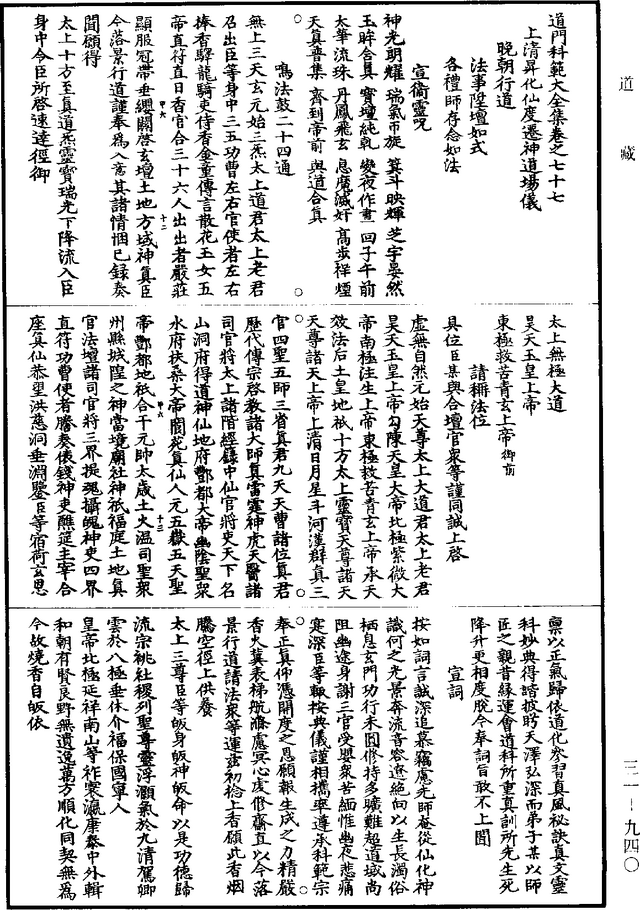 道藏
道門科範大全集卷之七十七
上清昇化仙度遷神道場儀
晚朝行道
法事陞壇如式
各禮師存念如法
宣衞靈呪
神光朗耀 瑞氣帀旋 箕斗映輝 芝宇晏然
玉眸含真 寶壇純乾 變夜作晝 回子午前
太華流珠 丹鳳飛玄 息魔滅奸 高奏祥煙
天真普集 齊到帝前 與道合真
鳴法鼓二十四通
無上三天玄元始三炁太上道君太上老君
召出臣等身中三五功曹左右官使者左右
捧香驛龍騎吏侍香金童傳言散花玉女五
帝直符直日香官合三十六人出出者嚴莊
顯服冠帶垂纓關啓玄壇土地方域神真臣
今落景行道謹奉為入意其諸情悃已録奏
聞願得
太上十方至真道炁靈寶瑞光下降流入臣
身中令臣所啓速達徑御
太上無極大道
昊天玉皇上帝
東極救苦青玄上帝御前
請稱法位
具位臣某與合壇官衆等謹同誠上啓
虛無自然元始天尊太上大道君太上老君
昊天玉皇上帝勾陳天皇大帝北極紫微大
帝南極注生上帝東極救苦青玄上帝承天
效法后土皇地祇十方太上靈寶天尊諸天
天尊諸天上帝上清日月星斗河漢群真三
官四聖五師三省真君九天天曹諸位真君
歷代傳宗啓教諸大師真雷霆神虎天醫諸
司官將太上諸階經籙中仙官將吏天下名
山洞府得道神仙地府酆都大帝幽陰聖衆
水府扶桑大帝閬苑真仙人元五嶽五天聖
帝酆都地祇合千元帥太歲土火溫司聖衆
州縣城隍之神當境廟社神祇福庭土地真
官法壇諸司官將三界提魂攝魄神吏四界
直符功曹使者謄奏俵錢神吏醮筵主宰合
座真仙恭望洪慈洞垂淵鑒臣等宿荷玄恩
稟以正氣歸依道化參習真風祕訣真文靈
科妙典得諧披眄天澤弘深而弟子某以師
匠之親昔縁運會道科所重真訓所先生死
降升更相度脫今奉詞旨敢不上聞
宣詞
按如詞言誠深追慕竊慮先師奄從仙化神
識何之光景奔流音容遼絶向以生長濁俗
栖息玄門功行未圓修持多曠難超道域尚
阻幽途身謝三官受嬰衆苦緬惟幽夜悲痛
寔深臣等輒按典儀謹相攜率遵承科範宗
奉正真仰憑開度之恩願報生成之力精嚴
香火冀表梯航滌慮冥心虔修齋直以今落
景行道請法衆等運玆初捻上香願此香烟
騰空徑上供養
太上三尊臣等皈身皈神皈命以是功德歸
流宗祧社稷列聖尊靈浮灝氣於九清駕卿
雲於八極垂休介福保國寧人
皇帝北極延祥南山等祚寰瀛康泰中外輯
和朝有賢良野無遺逸萬方順化同契無為
今故燒香自皈依
三一－九四〇